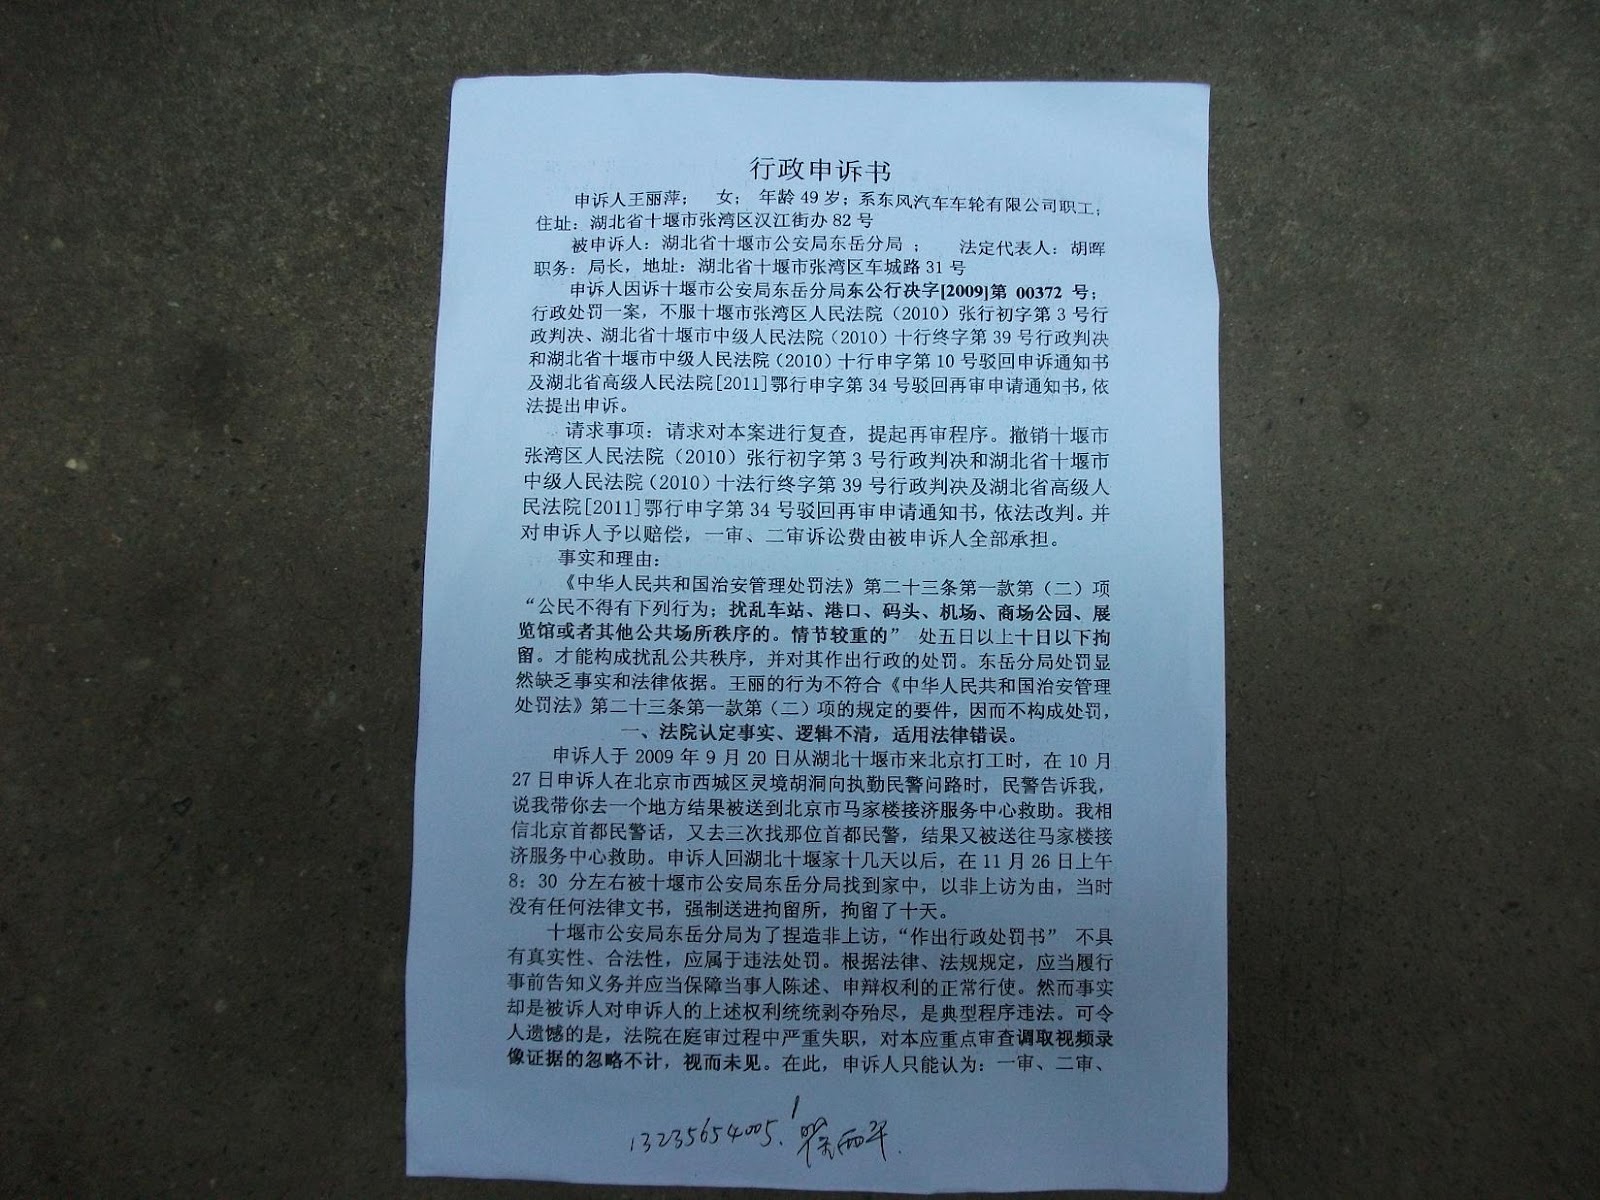 行政申诉书
申诉人王丽萍； 女； 年龄 49 岁；系东风汽车车轮有限公司职工；
住址：湖北省十堰市张湾区汉江街办 82 号
被申诉人：湖北省十堰市公安局东岳分局 ； 法定代表人：胡晖
职务：局长，地址：湖北省十堰市张湾区车城路 31 号
申诉人因诉十堰市公安局东岳分局东公行决字[2009]第 00372 号；
行政处罚一案，不服十堰市张湾区人民法院（2010）张行初字第 3 号行
政判决、湖北省十堰市中级人民法院（2010）十行终字第 39 号行政判决
和湖北省十堰市中级人民法院（2010）十行申字第 10 号驳回申诉通知书
及湖北省高级人民法院[2011]鄂行申字第 34 号驳回再审申请通知书，依
法提出申诉。
请求事项：请求对本案进行复查，提起再审程序。撤销十堰市
张湾区人民法院（2010）张行初字第 3 号行政判决和湖北省十堰市
中级人民法院（2010）十法行终字第 39 号行政判决及湖北省高级人
民法院[2011]鄂行申字第 34 号驳回再审申请通知书，依法改判。并
对申诉人予以赔偿，一审、二审诉讼费由被申诉人全部承担。
事实和理由：
《中华人民共和国治安管理处罚法》第二十三条第一款第（二）项
“公民不得有下列行为；扰乱车站、港口、码头、机场、商场公园、展
览馆或者其他公共场所秩序的。情节较重的” 处五日以上十日以下拘
留。才能构成扰乱公共秩序，并对其作出行政的处罚。东岳分局处罚显
然缺乏事实和法律依据。王丽的行为不符合《中华人民共和国治安管理
处罚法》第二十三条第一款第（二）项的规定的要件，因而不构成处罚，
一、法院认定事实、逻辑不清，适用法律错误。
申诉人于 2009 年 9 月 20 日从湖北十堰市来北京打工时，在 10 月
27 日申诉人在北京市西城区灵境胡洞向执勤民警问路时，民警告诉我，
说我带你去一个地方结果被送到北京市马家楼接济服务中心救助。我相
信北京首都民警话，又去三次找那位首都民警，结果又被送往马家楼接
济服务中心救助。申诉人回湖北十堰家十几天以后，在 11 月 26 日上午
8：30 分左右被十堰市公安局东岳分局找到家中，以非上访为由，当时
没有任何法律文书，强制送进拘留所，拘留了十天。
十堰市公安局东岳分局为了捏造非上访，“作出行政处罚书” 不具
有真实性、合法性，应属于违法处罚。根据法律、法规规定，应当履行
事前告知义务并应当保障当事人陈述、申辩权利的正常行使。然而事实
却是被诉人对申诉人的上述权利统统剥夺殆尽，是典型程序违法。可令
人遗憾的是，法院在庭审过程中严重失职，对本应重点审查调取视频录
像证据的忽略不计，视而未见。在此，申诉人只能认为：一审、二审、
1
13235654005.